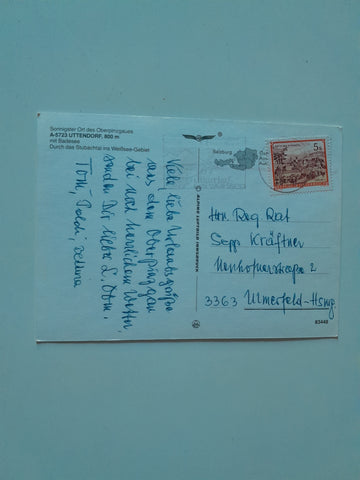 Sonnigster Ort des Oberpinzgaues
A-5723 UTTENDORF, 800 m
mit Badesee
Durch das Stubachtal ins Weißsee-Gebiet
Viele liebe Urlaubsgrüße
aus dem Oberpinzgau
bei noch herrlichem Wetter
senden Dir lieber L. Obm.
Toni, Poldi, Bettina
ALPINE LUFTBILD INNSBRUCK
Salzburg
5 S
Hrn. Reg Rat
Sepp Kräftner
2
3363 Ulmerfeld-Hsng
83440